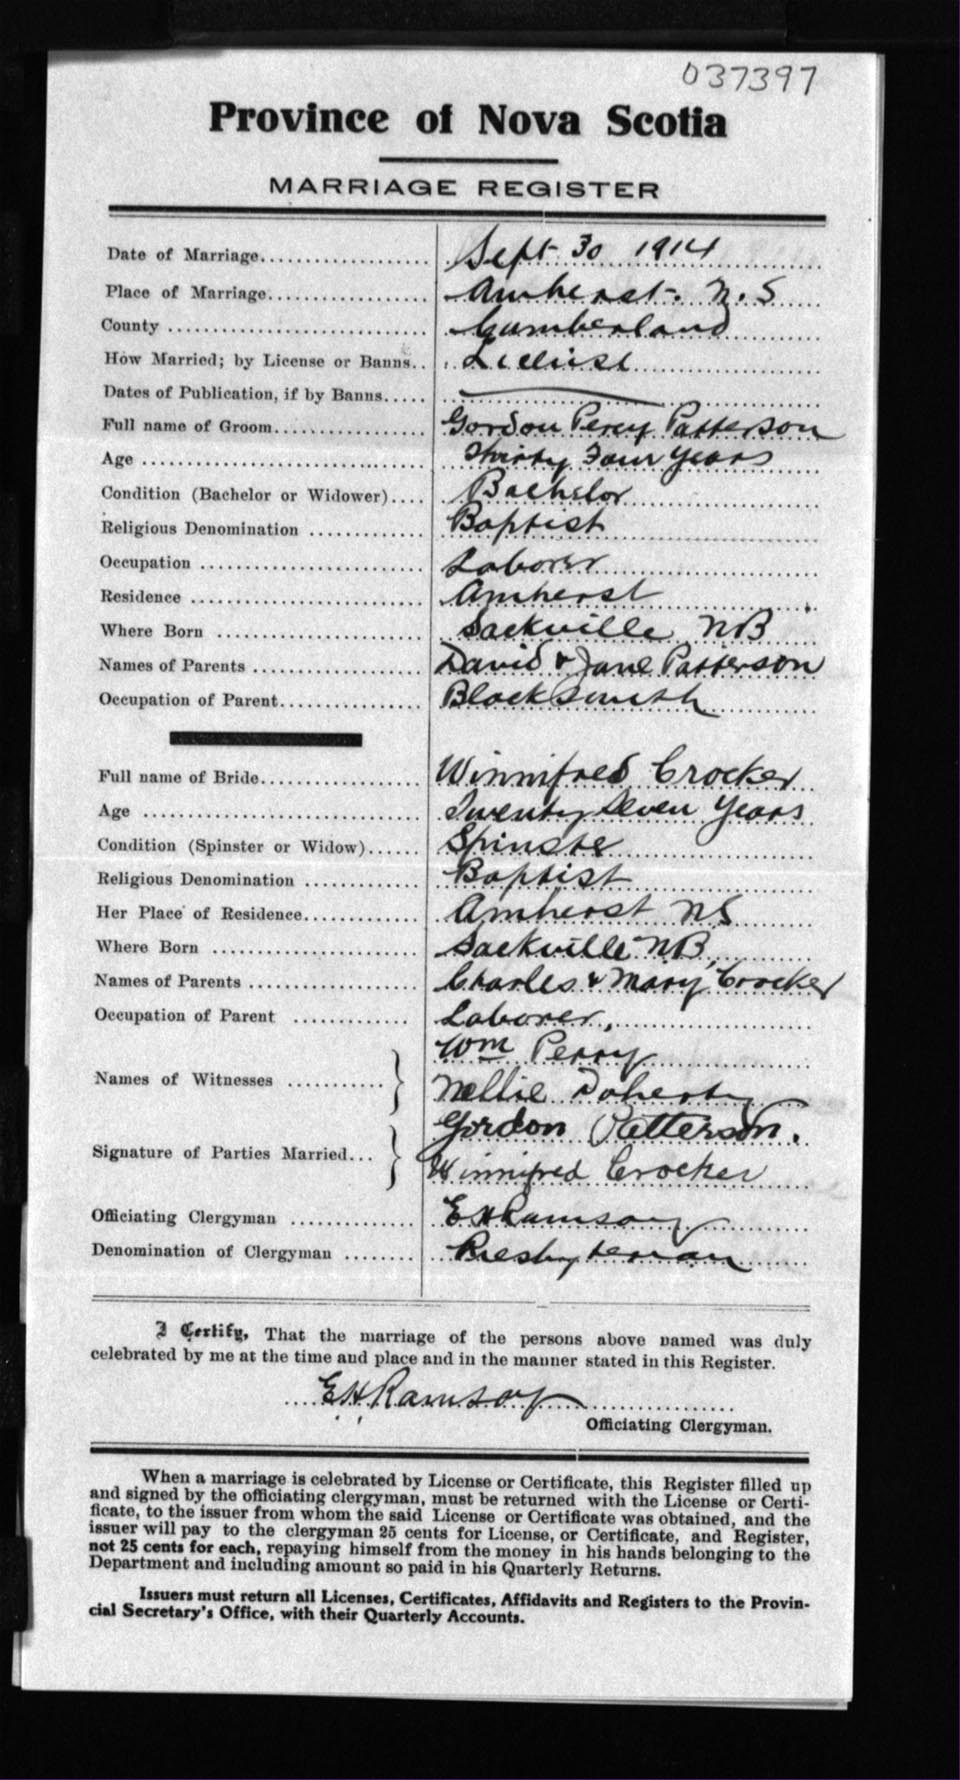 037397
Province of Nova Scotia
MARRIAGE REGISTER
Date of Marriage.................... Sept 30 1914
Place of Marriage................... Amherst. N. S
County .............................. Cumberland
How Married; by License or Banns.. License
Dates of Publication, if by Banns.....
Full name of Groom.................. Gordon Percy Patterson
Age ................................. Thirty Four years
Condition (Bachelor or Widower).... Bachelor
Religious Denomination ............. Baptist
Occupation .......................... Laborer
Residence ........................... Amherst
Where Born ........................ Sackville NB
Names of Parents .................... David & Jane Patterson
Occupation of Parent................. Blacksmith
Full name of Bride................... Winnifred Crocker
Age ................................. Twenty Seven Years
Condition (Spinster or Widow)...... Spinster
Religious Denomination ............. Baptist
Her Place of Residence............. Amherst NS
Where Born ........................ Sackville NB,
Names of Parents .................... Charles & Mary Crocker
Occupation of Parent .............. Laborer,
Wm Perry
Names of Witnesses ............
Nellie Doherty
Gordon Patterson.
Signature of Parties Married...
Winnifred Crocker
Officiating Clergyman ............... E H Ramsay
Denomination of Clergyman ........ Presbyterian
I Certify, That the marriage of the persons above named was duly
celebrated by me at the time and place and in the manner stated in this Register.
E H Ramsay
Officiating Clergyman.
When a marriage is celebrated by License or Certificate, this Register filled up
and signed by the officiating clergyman, must be returned with the License or Certi-
ficate, to the issuer from whom the said License or Certificate was obtained, and the
issuer will pay to the clergyman 25 cents for License, or Certificate, and Register,
not 25 cents for each, repaying himself from the money in his hands belonging to the
Department and including amount so paid in his Quarterly Returns.
Issuers must return all Licenses, Certificates, Affidavits and Registers to the Provin-
cial Secretary's Office, with their Quarterly Accounts.